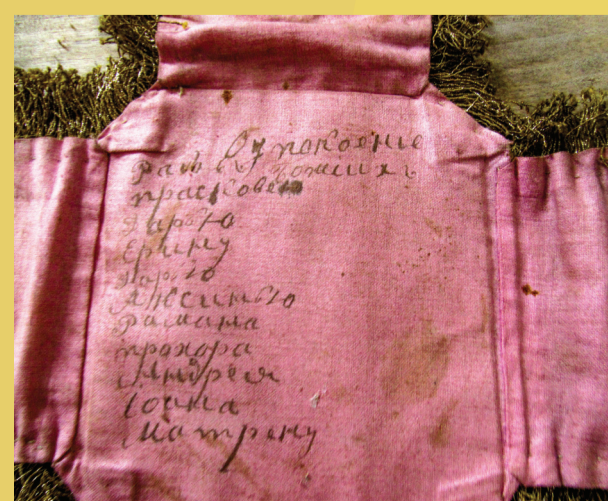 в упокоение
раб божиих
прасковею
дарью
ерину
дарью
Аксинью
рамана
прохора
Андрея
Iоана
Матрену